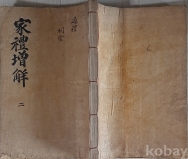 家禮增解
二
通禮
kobay